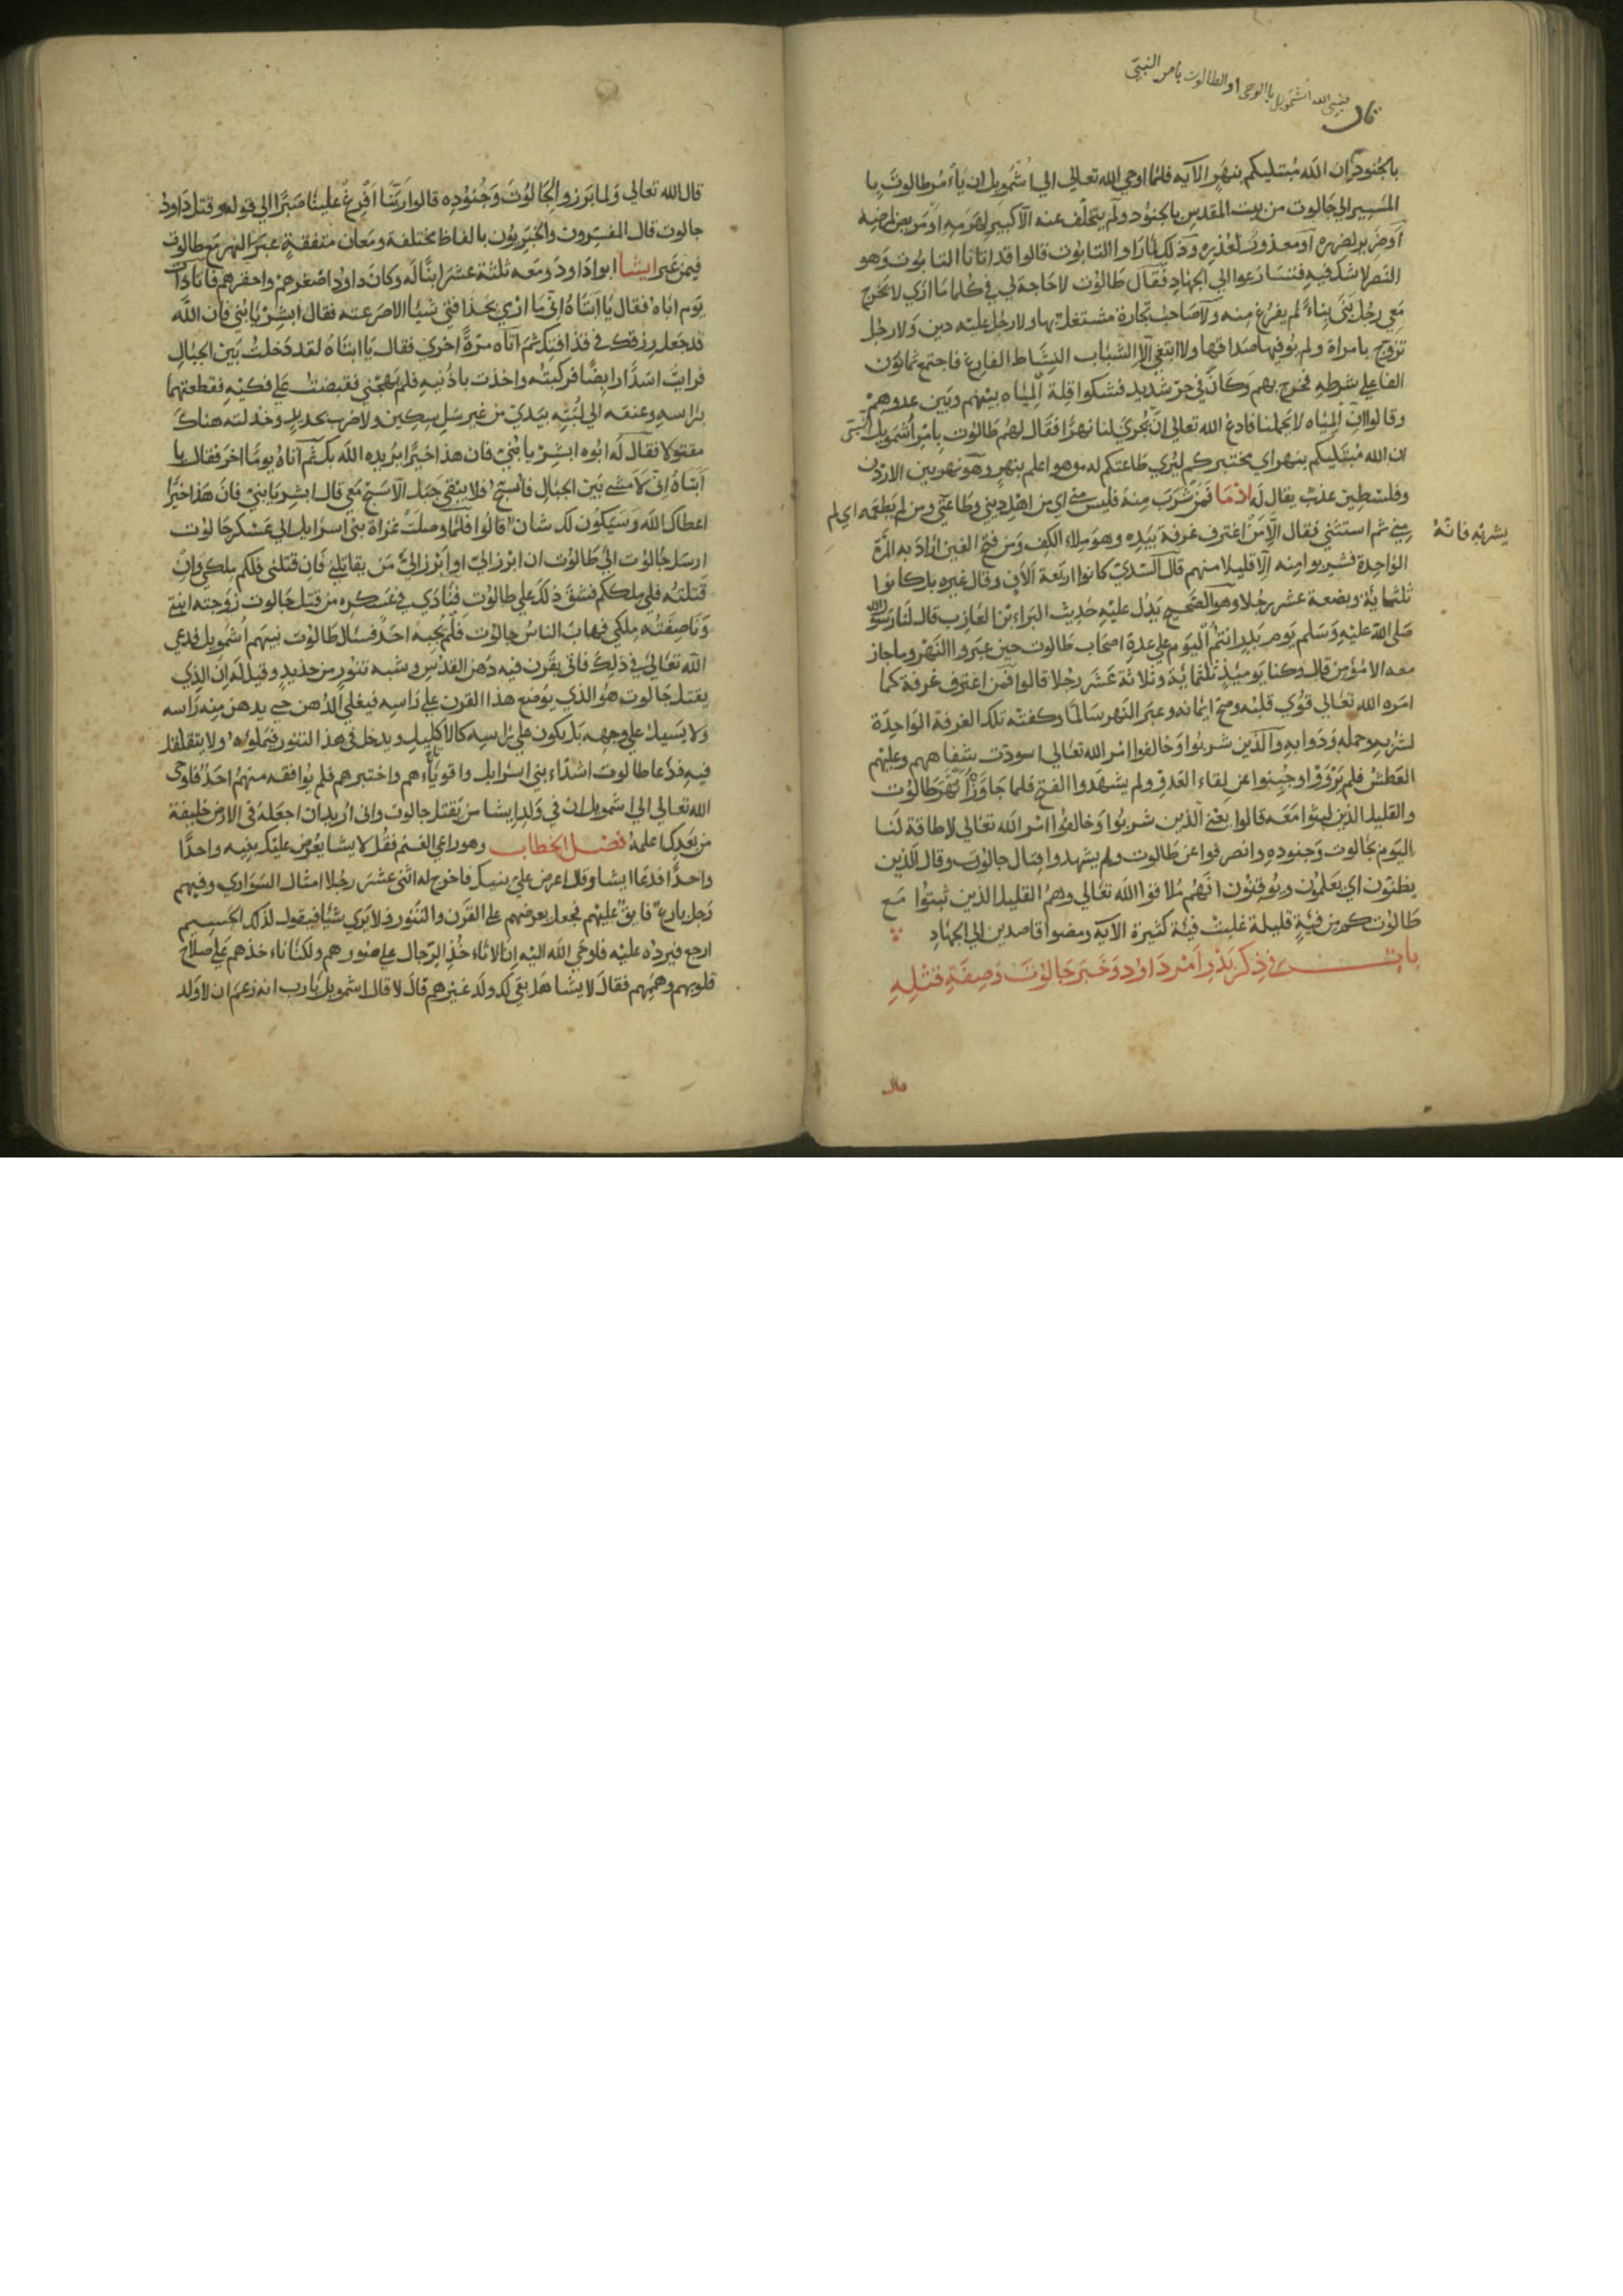 فنبى الله اشمويل باالوحى او الطالوت بامر النبيّ
قال
بالجنود ان الله مبتليكم بنهر الآيه فلما اوحي الله تعالي الي اشمويل ان يأمر طالوت با
المسير الي جالوت من بيت المقدس بالجنود ولم يتخلّف عنه الا كبير لهرمه او مريض لمرضه
او ضرير لضرره او معذور لعذره وذلك لما راوا التابوت قالوا قد اتانا التابوت وهو
النصر لا شك فيه فتسارعوا الي الجهاد فقال طالوت لا حاجة لي في كلما ارى لا يخرج
معي رجل بنى بناء لم يفرغ منه ولا صاحب تجارة مشتغل بها ولا رجل عليه دين ولا رجل
تزوج بامراة ولم يوفيها صداقها ولا ابتغي الا الشباب النشاط الفارغ فاجتمع ثمانون
الفا علي شرطه فخرج بهم وكان في حر شديد فشكوا قلة المياه بينهم وبين عدوهم
وقالوا ان المياه لا تحملنا فادع الله تعالي ان يجري لنا نهرا فقال لهم طالوت بامر اشمويل النبى
ان الله مبتليكم بنهر اي مختبركم ليري طاعتكم له وهو اعلم بنهر وهو نهر بين الاردن
وفلسطين عذب يقال له اذما فمن شرب منه فليس مني اي من اهل ديني وطاعتي ومن لم يطعمه اي لم
يشربه فانّه
مني ثم استثني فقال الا من اغترف غرفة بيده وهو ملاء الكف ومن فتح الغين اراد به المرّة
الواحدة فشربوا منه الا قليلا منهم قال السدي كانوا اربعة الاف وقال غيره بل كانوا
ثلثماية وبضعة عشر رجلا وهو الصحيح يدل عليه حديث البراء بن العازب قال لنا رسول الله
صلى الله عليه وسلم يوم بدر انتم اليوم علي عدة اصحاب طالوت حين عبروا النهر وما جاز
معه الا مؤمن قال وكنا يوميذ ثلثماية وثلاثة عشر رجلا قالوا فمن اغترف غرفة كما
امره الله تعالي قوي قلبه وصح ايمانه وعبر النهر سالما وكفته تلك الغرفة الواحدة
لشربه وحمله ودوابه والذين شربوا وخالفوا امر الله تعالي اسودت شفاههم وغلبهم
العطش فلم يرووا وجبنوا عن لقاء العدو ولم يشهدوا الفتح فلما جاوز النهر طالوت
والقليل الذين امنوا معه قالوا يعني الذين شربوا وخالفوا امر الله تعالي لا طاقة لنا
اليوم بجالوت وجنوده وانصرفوا عن طالوت ولم يشهدوا قتال جالوت وقال الذين
يظنون اي يعلمون ويوقنون انهم ملاقوا الله تعالي وهم القليل الذين ثبتوا مع
طالوت كم من فئة قليلة غلبت فئة كثيرة الآية ومضوا قاصدين الي الجهاد
باب في ذكر بدو امر داود وخبر جالوت وصفة قتله
قال
قال الله تعالي ولما برزوا لجالوت وجنوده قالوا ربنا افرغ علينا صبرا الي قوله وقتل داود
جالوت قال المفسرون والخبريون بالفاظ مختلفة ومعان متفقة عبر النهر مع طالوت
فيمن عبر ايشا ابو داود ومعه ثلثة عشر ابنا له وكان داود اصغرهم واحقرهم فاتا ذات
يوم اباه فقال يا ابتاه اني ما ارمي بحذافتي شيئا الا صرعته فقال ابشر يا بني فان الله
قد جعل رزقك في قذافتك ثم اتاه مرة اخري فقال يا ابتاه لقد دخلت بين الجبال
فرايت اسدا رابضا فركبته واخذت باذنيه فلم يهجني فقبضت علي فكيه فقطعتهما
براسه وعنقه الي لبته بيدي من غير سل سكين ولا ضرب بحديد وخذلته هناك
مقتولا فقال له ابوه ابشر يا بني فان هذا خيرا يريده الله بك ثم اتاه يوما اخر فقال يا
ابتاه اني لامشي بين الجبال فاسبح فلا يبقي جبل الا سبح معي قال ابشر يا بني فان هذا خيرا
اعطاك الله وسيكون لك شان قالوا فلما وصلت غزاة بني اسرايل الي عسكر جالوت
ارسل جالوت الي طالوت ان ابرز الي او ابرز الي من يقاتلني فان قتلني فلكم ملكي وان
قتلته فلي ملككم فشق ذلك علي طالوت فنادي في عسكره من قتل جالوت زوجته ابنتي
وناصفته ملكي فهاب الناس جالوت فلم يجبه احد فسال طالوت نبيهم اشمويل فدعي
الله تعالي في ذلك فاتي بقرن فيه دهن القدس وشبه تنور من حديد وقيل له ان الذي
يقتل جالوت هو الذي يوضع هذا القرن علي راسه فيغلي الدهن حتي يدهن منه راسه
ولا يسيل علي وجهه بل يكون علي راسه كالاكليل ويدخل في هذا التنور فيملوه ولا يتقلقل
فيه فدعا طالوت اشداء بني اسرايل واقوياءهم واختبرهم فلم يوافقه منهم احد فاوحى
الله تعالي الي اشمويل ان في ولد ايشا من يقتل جالوت واني اريد ان اجعله في الارض خليفة
من بعدك اعلمه فصل الخطاب وهو راعي الغنم فقل لايشا يعرض عليك بنيه واحدا
واحدا فدعا ايشا وقال اعرض علي بنيك فاخرج له اثني عشر رجلا امثال السواري وفيهم
رجل بارع فايق عليهم فجعل يعرضهم علي القرن والتنور فلا يرى شيئا فيقول لذلك الجسيم
ارجع فيرده عليه فاوحي الله اليه انا لا ناخذ الرجال علي صورهم ولكنا ناخذهم علي صلاح
قلوبهم وهمهم فقال لايشا هل بقي لك ولد غيرهم قال لا قال اشمويل يا رب انه زعم ان لا ولد